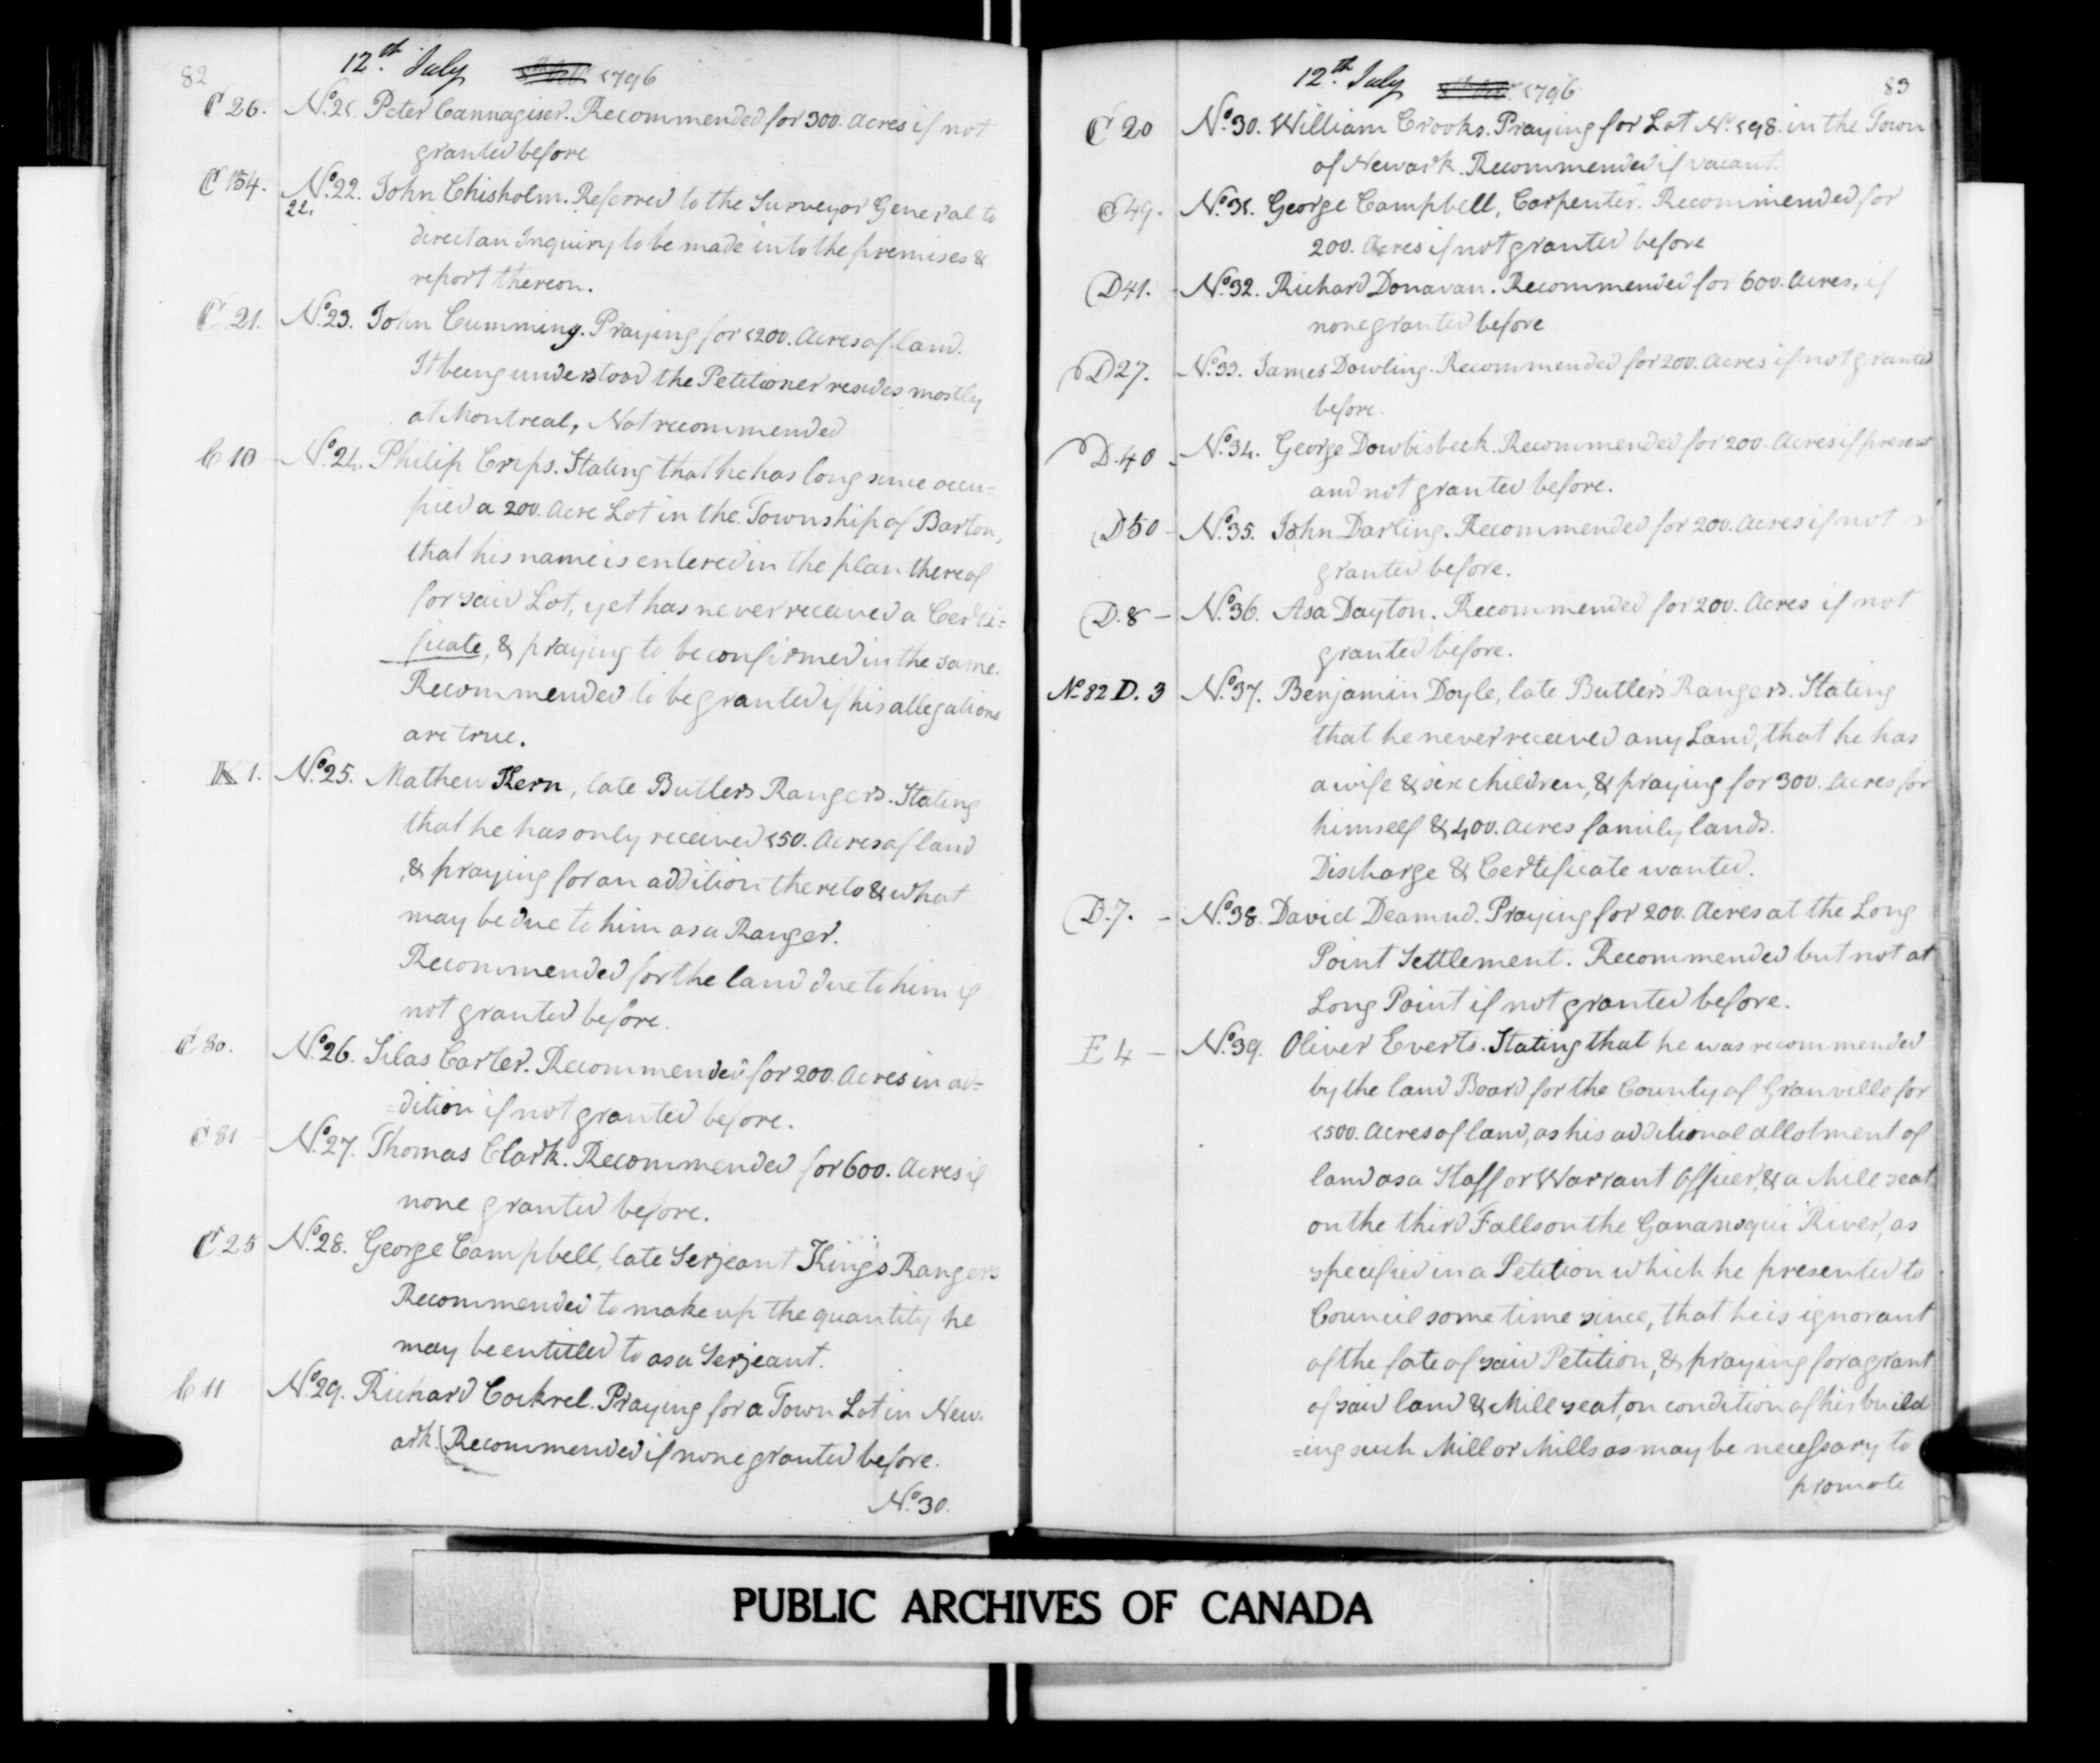 82
12th July 1796
C 26. No. 21. Peter Cannagiser. Recommended for 300. Acres if not
granted before
C 154. No. 22. John Chisholm. Referred to the Surveyor General to
22.
direct an Inquiry to be made into the premises &
report thereon.
C 21. No. 23. John Cumming. Praying for 1200. Acres of land.
It being understood the Petitioner resides mostly
at Montreal, Not recommended
C 10 No. 24. Philip Crips. Stating that he has long since occu=
pied a 200. Acre Lot in the Township of Barton,
that his name is entered in the plan thereof
for said Lot, yet has never received a Certi=
ficate, & praying to be confirmed in the same.
Recommended to be granted if his allegations
are true.
K 1. No. 25. Mathew Kern, late Butlers Rangers. Stating
that he has only received 150. Acres of land
& praying for an addition thereto & what
may be due to him as a Ranger.
Recommended for the land due to him if
not granted before.
C 80. No. 26. Silas Carter. Recommended for 200. Acres in ad=
=dition if not granted before.
C 81 No. 27. Thomas Clark. Recommended for 600. Acres if
none granted before.
C 25 No. 28. George Campbell, late Serjeant King's Rangers
Recommended to make up the quantity he
may be entitled to as a Serjeant.
C 11 No. 29. Richard Cockrel. Praying for a Town Lot in New-
ark. (Recommended if none granted before.
No. 30.
12th July 1796
83
C 20 No. 30. William Crooks. Praying for Lot No. 198. in the Town
of Newark. Recommended if vacant.
C 49. No. 31. George Campbell, Carpenter. Recommended for
200. Acres if not granted before
D 41. No. 32. Richard Donavan. Recommended for 600. Acres, if
none granted before
D 27. No. 33. James Dowling. Recommended for 200. Acres if not granted
before.
D. 40 No. 34. George Dowbisbeck. Recommended for 200. Acres if present
and not granted before.
D 50 - No. 35. John Darling. Recommended for 200. Acres if not
granted before.
D. 8 - No. 36. Asa Dayton. Recommended for 200. Acres if not
granted before.
No 82 D. 3 No. 37. Benjamin Doyle, late Butler's Rangers. Stating
that he never received any Land, that he has
a wife & six children, & praying for 300. Acres for
himself & 400. Acres family lands.
Discharge & Certificate wanted.
D. 7. - No. 38. David Deamud. Praying for 200. Acres at the Long
Point Settlement. Recommended but not at
Long Point if not granted before.
E 4 - No. 39. Oliver Everts. Stating that he was recommended
by the land Board for the County of Granville for
1500. Acres of land, as his additional allotment of
land as a Staff or Warrant Officer, & a Mill seat
on the third Falls on the Gananoqui River, as
specified in a Petition which he presented to
Council some time since, that he is ignorant
of the fate of said Petition, & praying for a grant
of said land & Mill seat, on condition of his build
=ing such Mill or Mills as may be necessary to
promote
PUBLIC ARCHIVES OF CANADA